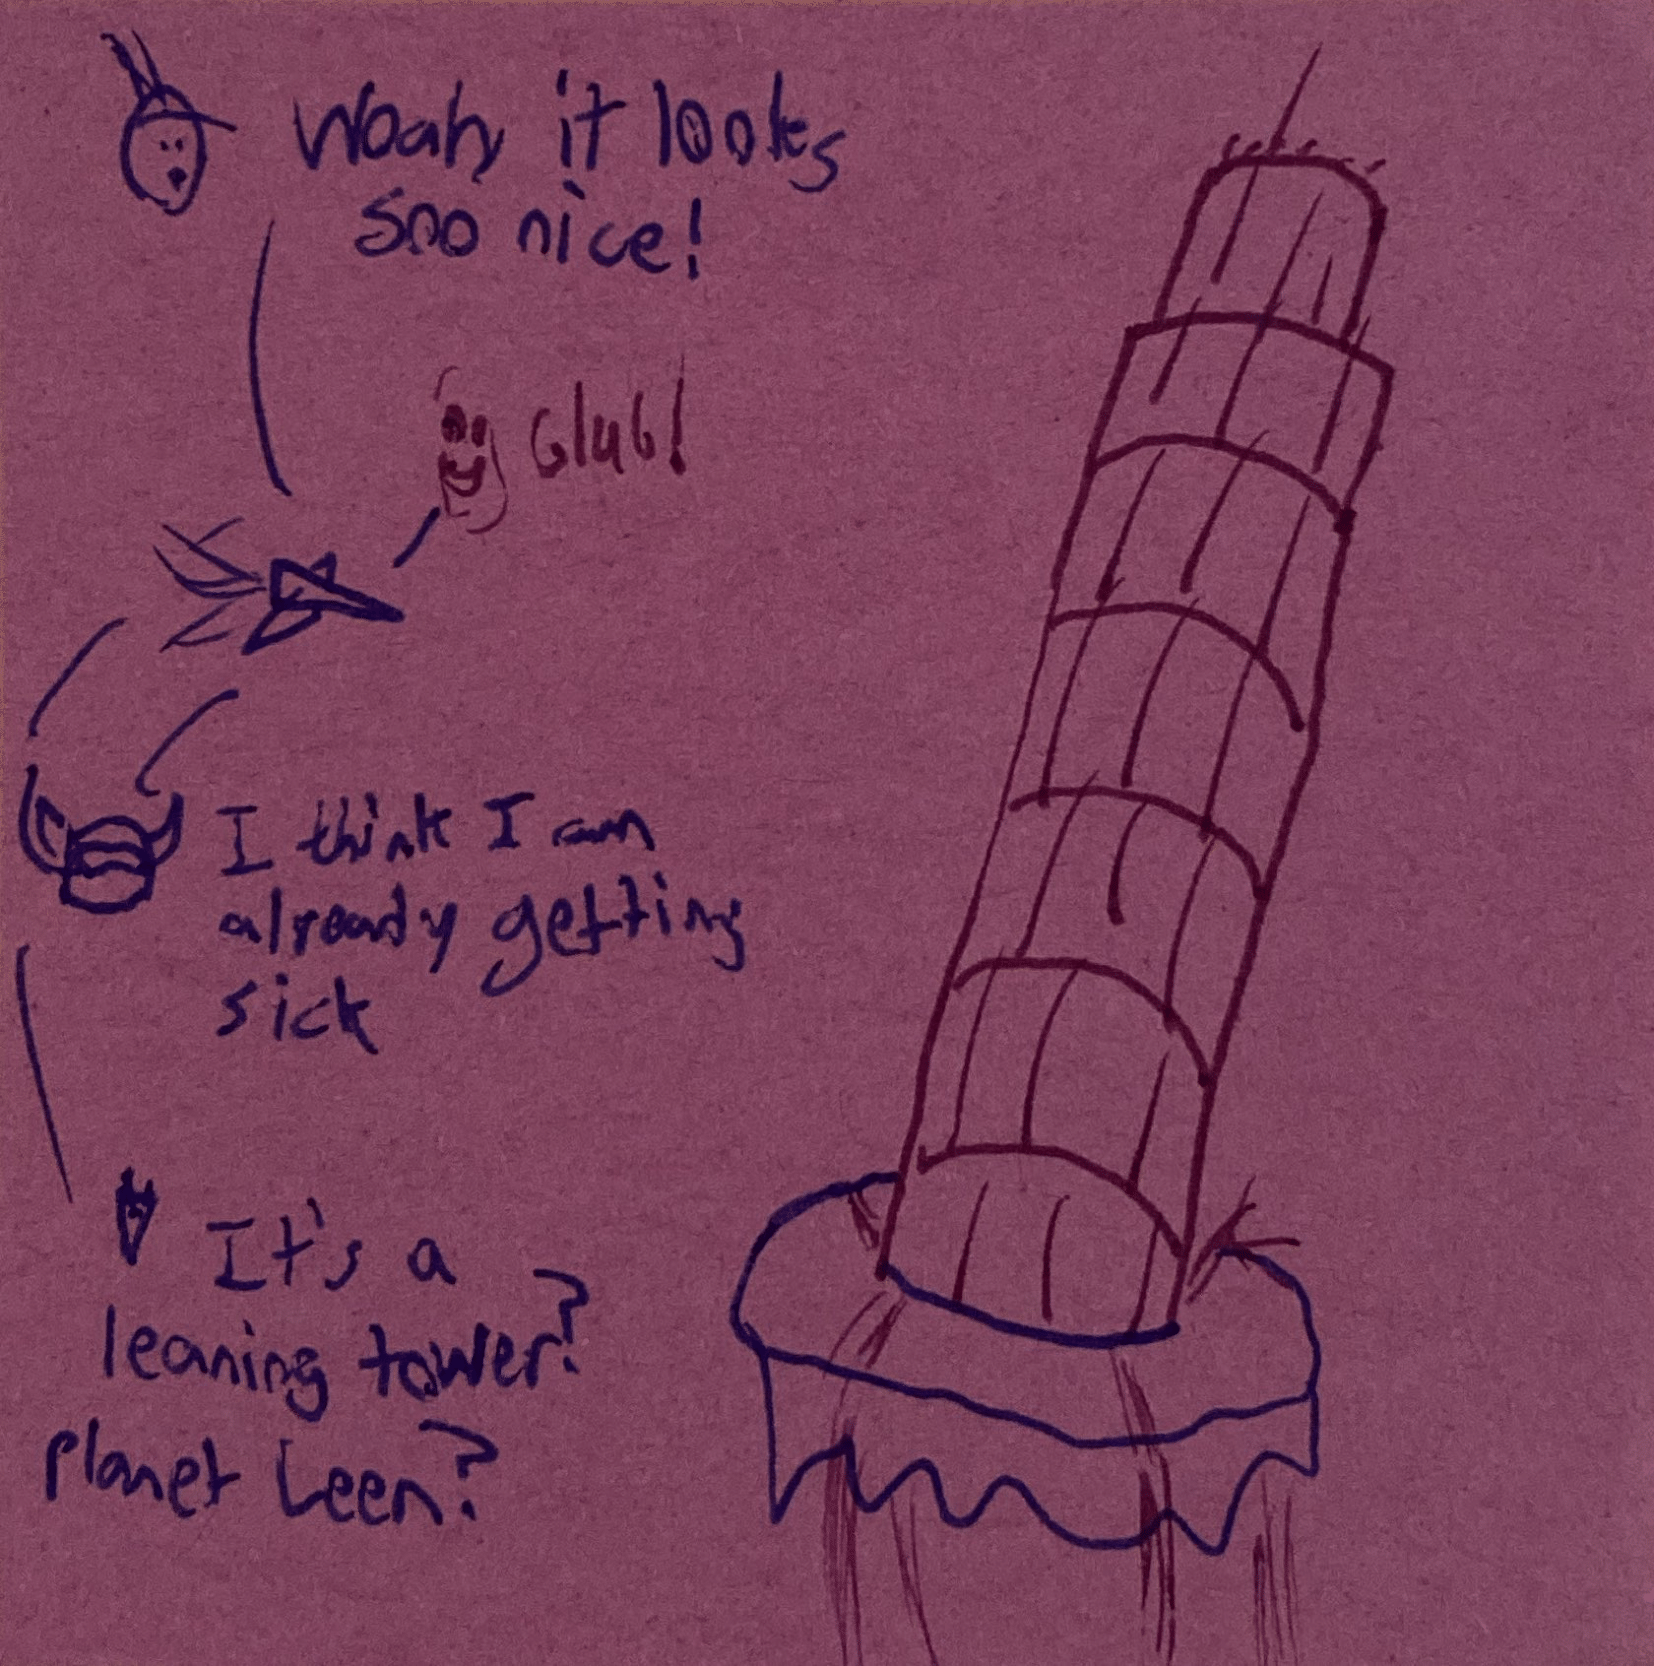 Woah it looks
soo nice!
Glub!
I think I am
already getting
sick
It's a
leaning tower?
Planet Leen?